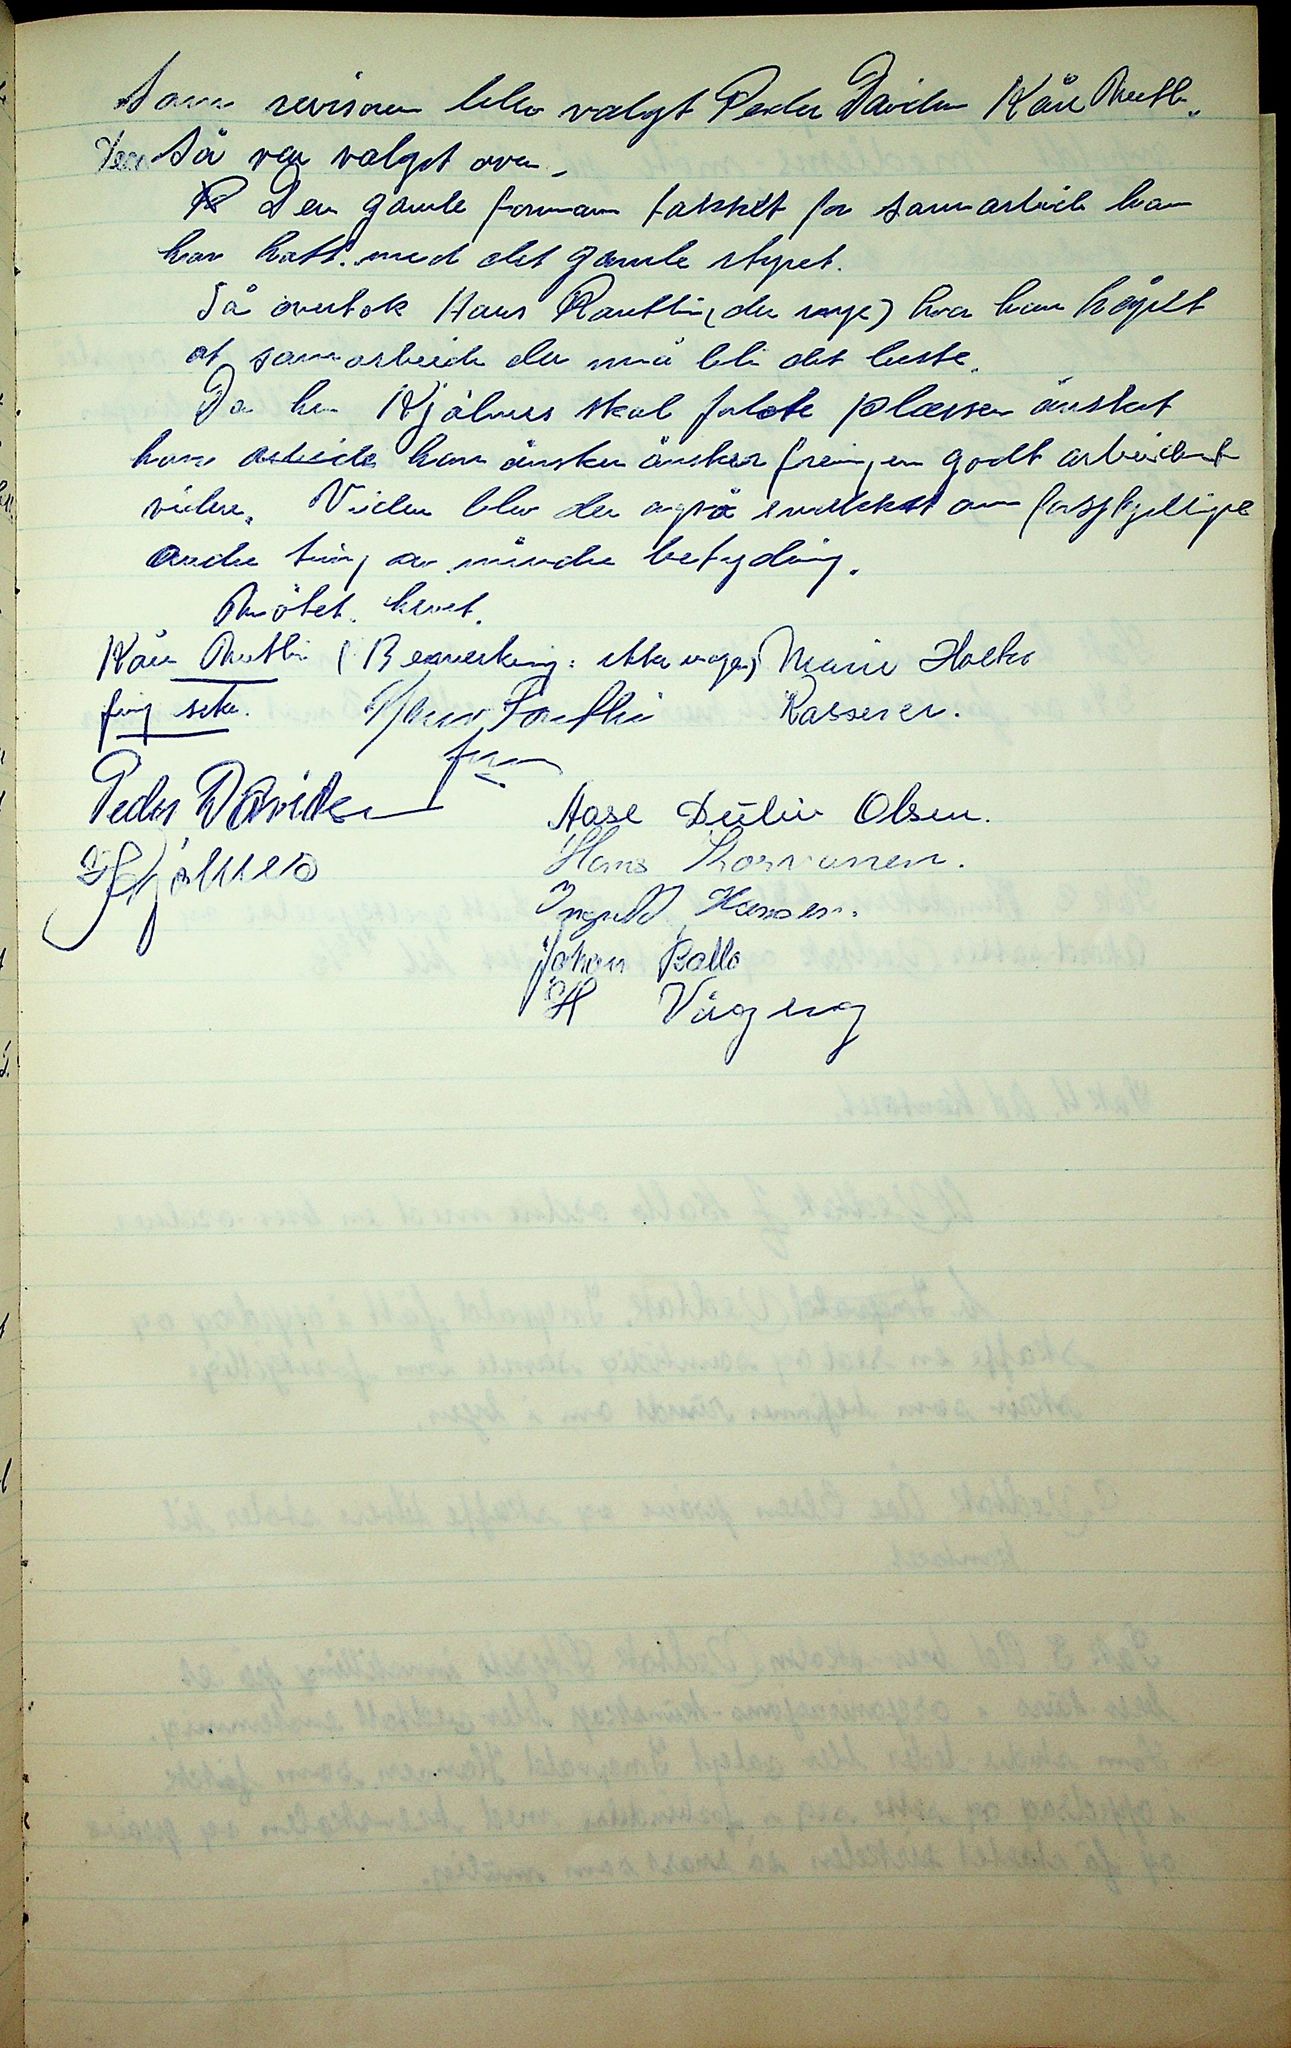 Som revisorer blev valgt Peder Davidsen Kåre
Så var valget over.
Den gamle formann takket for samarbeide han
har hatt med det gamle styret.
Så overtok Hans (den nye) hvor han håpet
at samarbeide der må bli det beste.
Da hr. Kjölnes skal forlate plassen önsket
han arbeide han önsker frem, en godt arbeidet
videre. Videre blev der også snakket om forskjellige
andre ting av mindre betydning.
Mötet hevet.
Kåre (Bemerkning: ikke noget) Marie Holbo
fung sekr. Hans Kasserer.
form
Peder Davidsen
Aase Olsen.
Kjölnes
Hans
Ingvald Hansen.
Johan Balto
H Vågeng